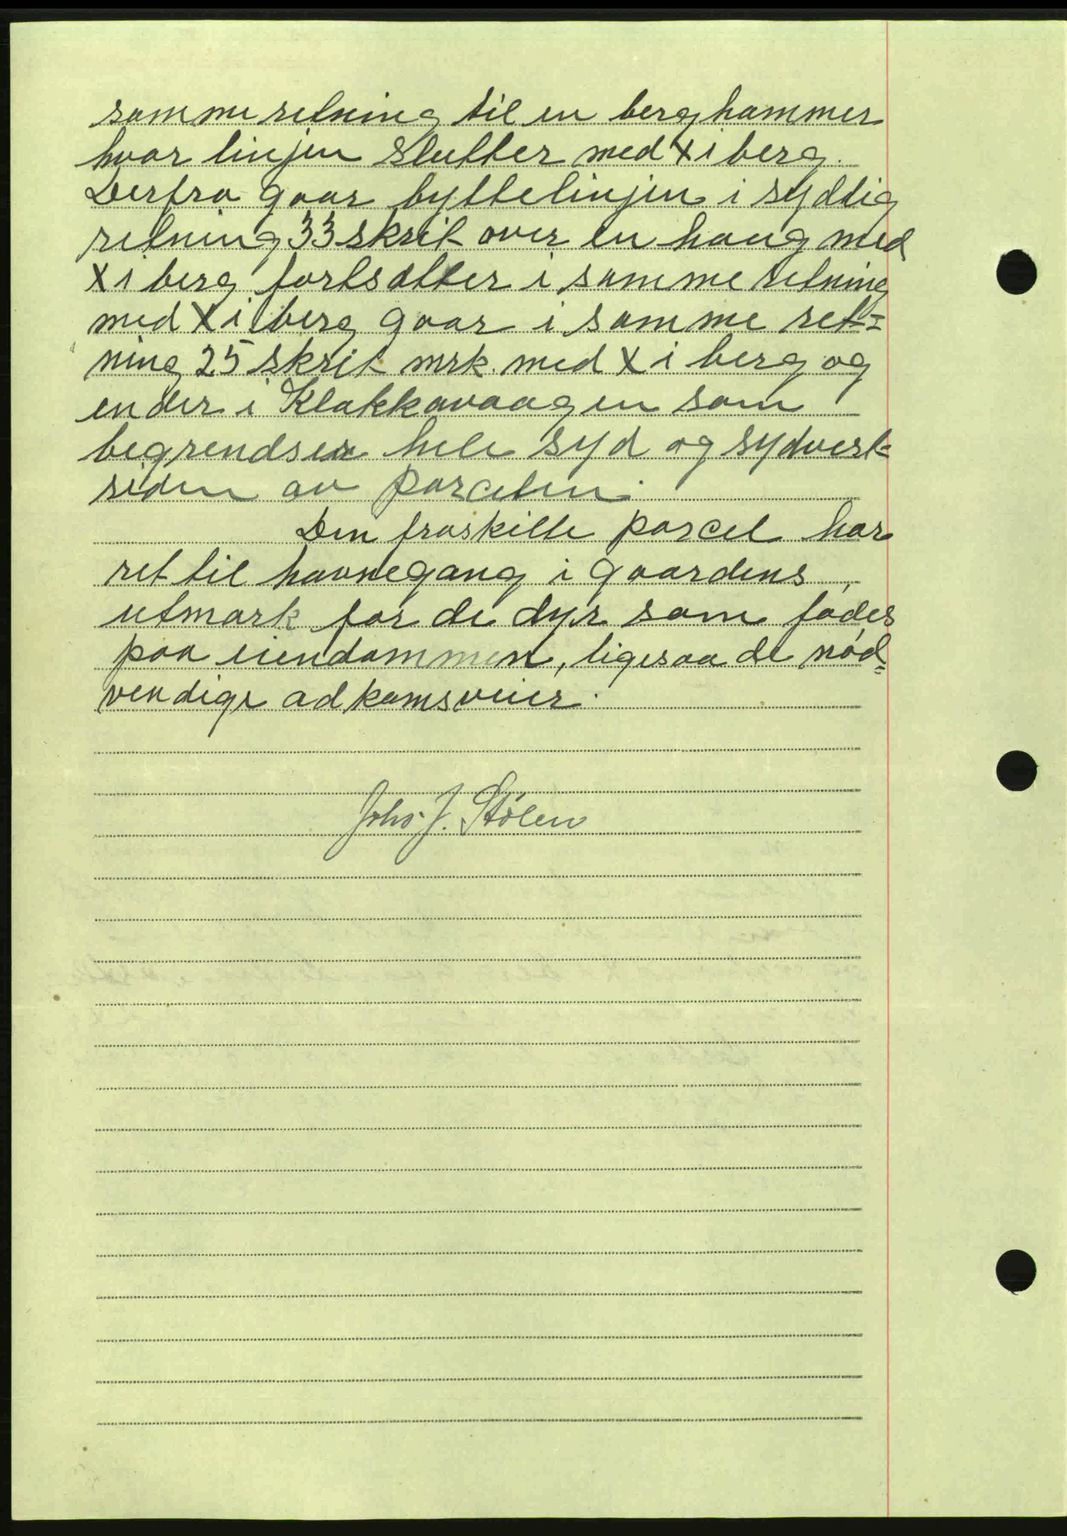 samme retning til en berghammer
hvor linjen slutter med X i berg.
Derfra gaar byttelinjen i sydlig
retning 33 skrit over en haug med
X i berg fortsætter i samme retning
med X i berg gaar i samme ret=
ning 25 skrit mrk. med X i berg og
ender i Klakkavaagen som
begrendser hele syd og sydvest-
siden av parcelen.
Den fraskilte parcel har
ret til havnegang i gaardens
utmark for de dyr som fødes
paa eiendommen, ligesaa de nød=
vendige adkomsveier.
Johs. J. Stølen